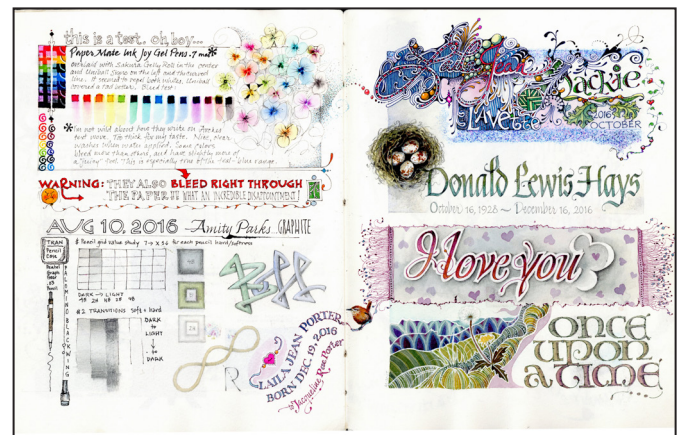 this is a test. oh, boy...
Paper Mate Ink Joy Gel Pens .7 mm*
overlaid with Sakura Gelly Roll in the center
and Uniball Signo on the left and
line. It seemed to repel both whites. Uniball
covered a tad better. Bleed test:
*I'm not wild about how they write on
Too thick for my taste. Nice, near
washes when water applied. Some colors
bleed more than others, and have slightly more of
a "juicy" feel. This is especially true of the teal-blue range.
WARNING: THEY ALSO BLEED RIGHT THROUGH
THE PAPER!! WHAT AN INCREDIBLE DISAPPOINTMENT!
AUG 10, 2016 ~ Amity Parks GRAPHITE
TRAN
Pencil
$ Pencil grid value study for each pencil hard/softness
DARK → LIGHT
#2 TRANSITIONS soft & hard
DARK
to
LIGHT
to
DARK
PALOMINO BLACKWING
Jeff
R
LAILA JEAN PORTER
BORN DEC. 19, 2016
to Jacqueline Rae Porter
Jean
Jackie
Lavelle
2016
OCTOBER
Donald Lewis Hays
October 16, 1928 ~ December 16, 2016
I love you
once
upon
a time